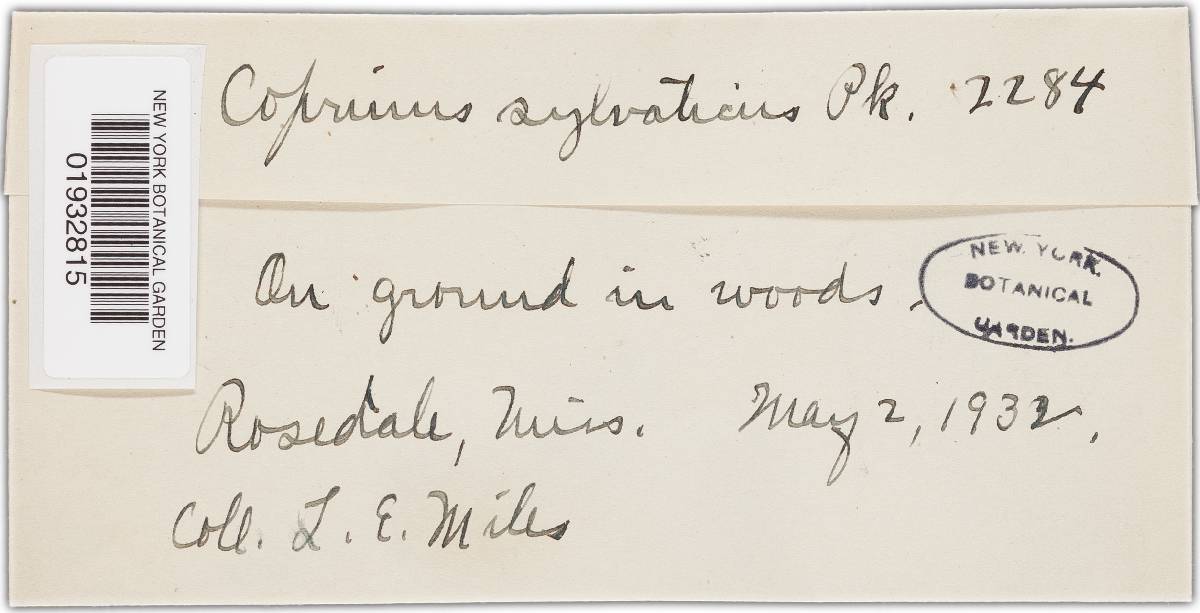 Coprinus sylvaticus Pk. 2284
NEW YORK BOTANICAL GARDEN
01932815
On ground in woods.
NEW YORK
BOTANICAL
GARDEN.
Rosedale, Miss. May 2, 1932.
Coll. L. E. Miles